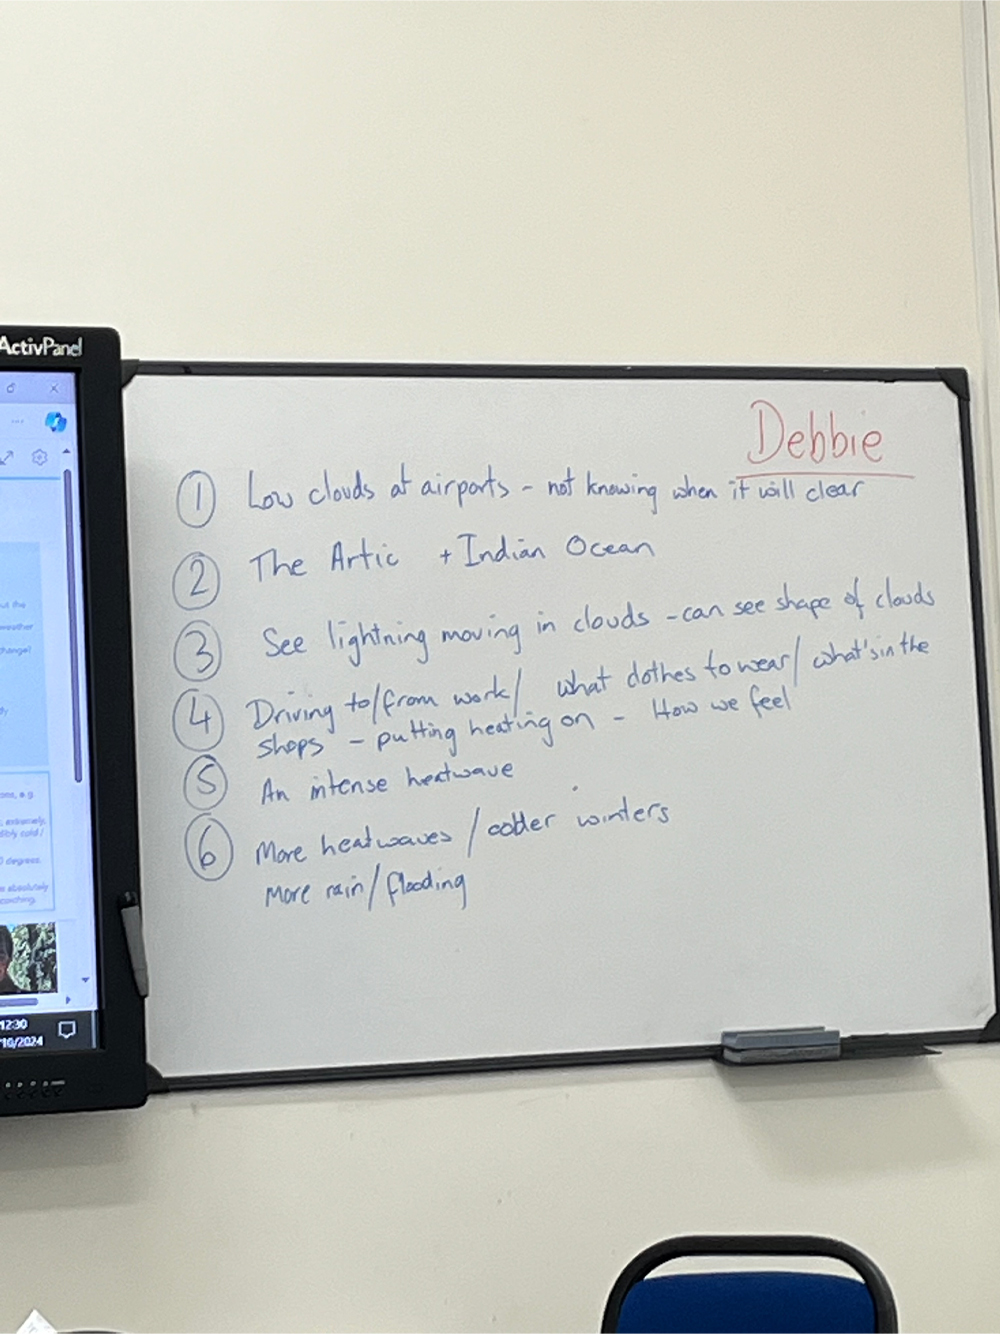 ActivPanel
Debbie
① Low clouds at airports - not knowing when it will clear
② The Artic + Indian Ocean
③ See lightning moving in clouds - can see shape of clouds
④ Driving to/from work/ what clothes to wear/ what's in the
shops - putting heating on - How we feel
⑤ An intense heatwave
⑥ More heatwaves / colder winters
More rain / flooding
out the
weather
change?
ons, e.g.
extremely,
dibly cold /
0 degrees.
absolutely
12:30
/10/2024